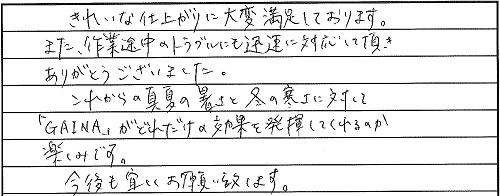 きれいな仕上がりに大変満足しております。
また、作業途中のトラブルにも迅速に対応して頂き
ありがとうございました。
これからの真夏の暑さと冬の寒さに対して
「GAINA」がどれだけの効果を発揮してくれるのか
楽しみです。
今後も宜しくお願い致します。